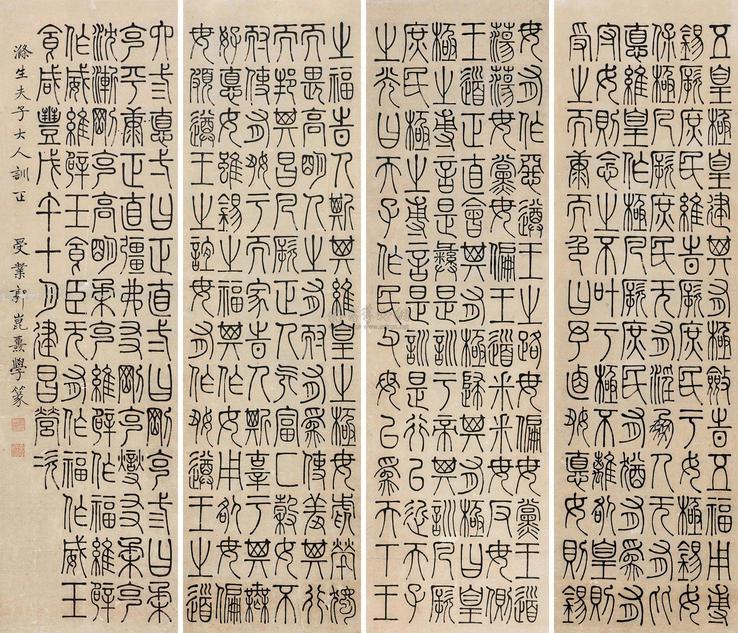 五皇極皇建其有極斂旹五福用尃
錫厥庶民維旹厥庶民亍女極錫女
保極凡厥庶民无有淫朋人无有比
德維皇作極凡厥庶民有猷有為有
守女則念之不叶亍極不離咎皇則
受之而康而色曰予攸好德女則錫
之福旹人斯其維皇之極毋虐煢獨
而畏高明人之有能有為使羞其行
而邦其昌凡厥正人既富方穀女不
能使有好亍而家旹人斯辜亍其無
好德女雖錫之福其作女用咎毋偏
毋頗遵王之誼毋有作好遵王之道
毋有作惡遵王之路毋偏毋黨王道
蕩蕩毋黨毋偏王道平平毋反毋側
王道正直會其有極歸其有極曰皇
極之尃言是彝是訓亍帝其訓凡厥
庶民極之尃言是訓是行以近天子
之光曰天子作民父母以為天下王
六三德一曰正直二曰剛克三曰柔
克平康正直彊弗友剛克燮友柔克
沈漸剛克高明柔克維辟作福維辟
作威維辟玉食臣无有作福作威玉
食咸豐戊午十月建昌營次
滌生夫子大人訓正 受業郭崑燾學篆